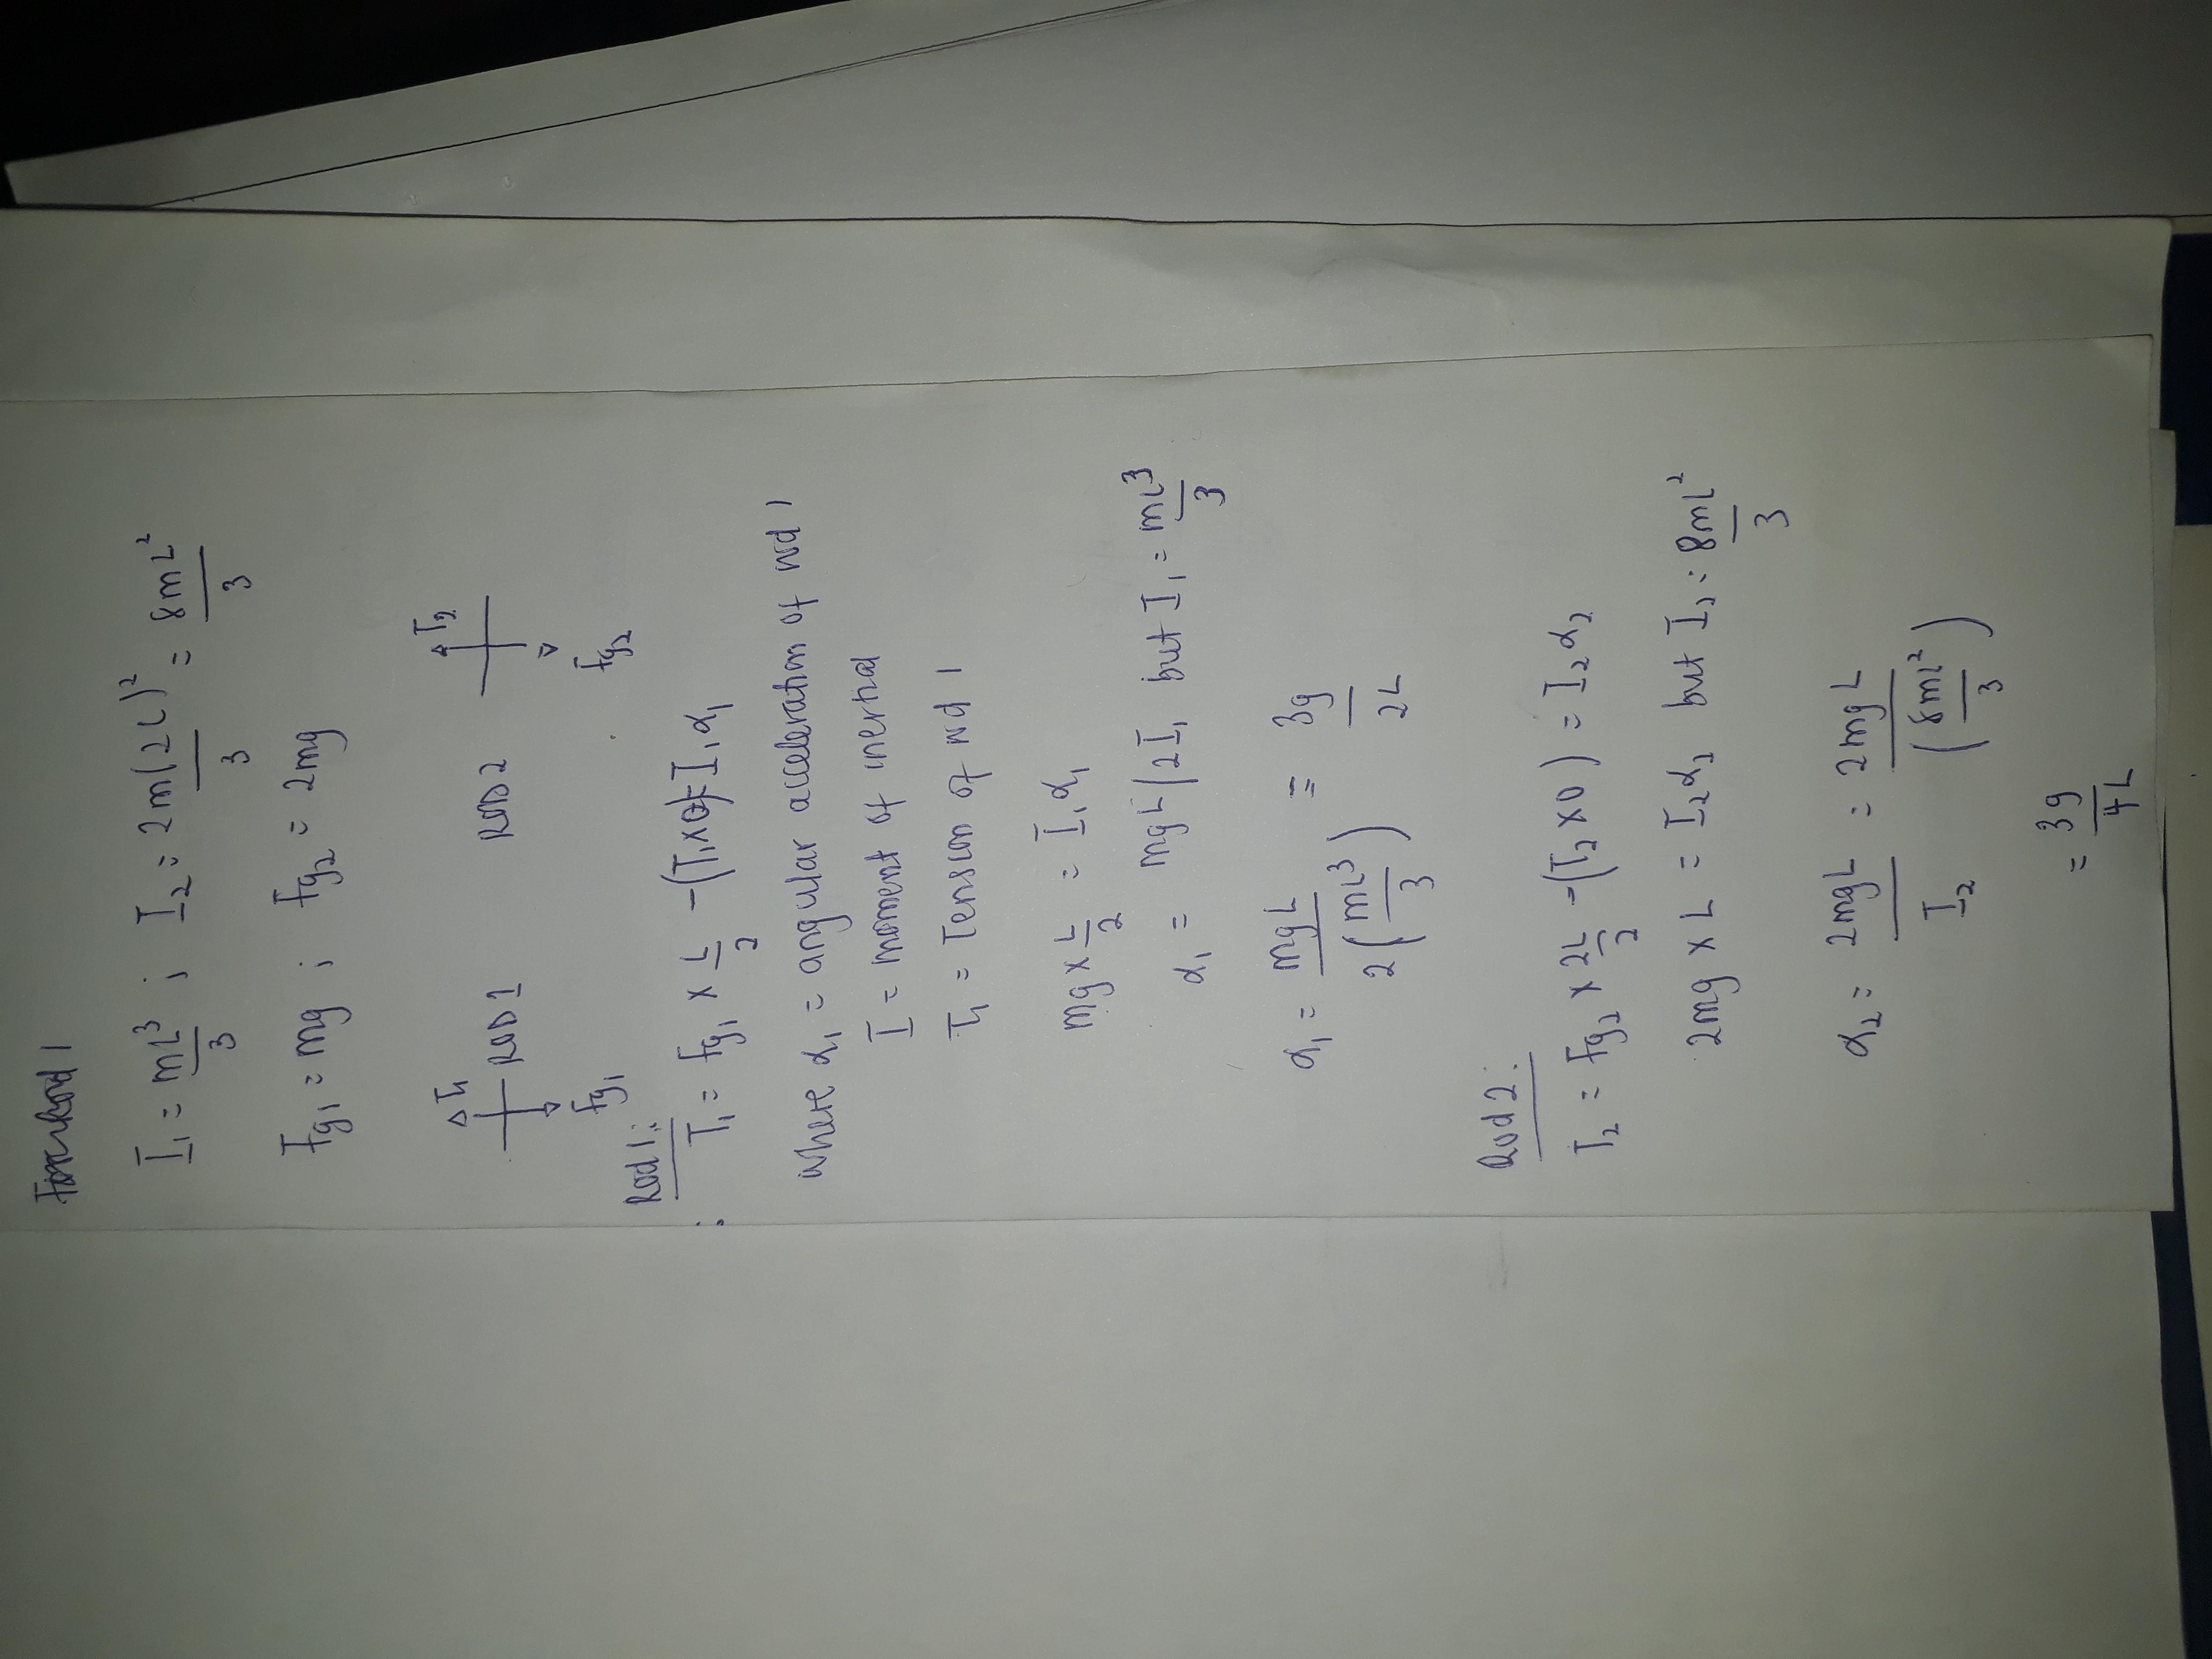 I₁ = mL³/3 ; I₂ = 2m(2L)²/3 = 8mL²/3
Fg₁ = mg ; Fg₂ = 2mg
T₁ ROD 1 ROD 2 T₂
Fg₁ Fg₂
Rod 1:
T₁ = Fg₁ × L/2 - (T₁×0) = I₁α₁
where α₁ = angular acceleration of rod 1
I = moment of inertial
T₁ = Tension of rod 1
mg × L/2 = I₁α₁
α₁ = mgL/2I₁ but I₁ = mL³/3
α₁ = mgL/2(mL³/3) = 3g/2L
Rod 2:
T₂ = Fg₂ × 2L/2 - (T₂×0) = I₂α₂
2mg × L = I₂α₂ but I₂ = 8mL²/3
α₂ = 2mgL/I₂ = 2mgL/(8mL²/3)
= 3g/4L